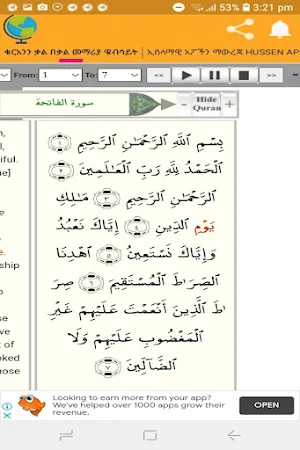 53% 3:21 pm
ቁርአንን ቃል በቃል መማሪያ ዌብሳይት | ኢስላማዊ አፖችን ማውረጃ HUSSEN AP
From: 1 To: 7 <<
سورة الفاتحة
- Hide Quran +
بِسْمِ ٱللَّهِ ٱلرَّحْمَـٰنِ ٱلرَّحِيمِ ﴿١﴾
ٱلْحَمْدُ لِلَّهِ رَبِّ ٱلْعَـٰلَمِينَ ﴿٢﴾
ٱلرَّحْمَـٰنِ ٱلرَّحِيمِ ﴿٣﴾ مَـٰلِكِ
يَوْمِ ٱلدِّينِ ﴿٤﴾ إِيَّاكَ نَعْبُدُ
وَإِيَّاكَ نَسْتَعِينُ ﴿٥﴾ ٱهْدِنَا
ٱلصِّرَٰطَ ٱلْمُسْتَقِيمَ ﴿٦﴾ صِرَ
ٰطَ ٱلَّذِينَ أَنْعَمْتَ عَلَيْهِمْ غَيْرِ
ٱلْمَغْضُوبِ عَلَيْهِمْ وَلَا
ٱلضَّآلِّينَ ﴿٧﴾
Looking to earn more from your app?
We've helped over 1000 apps grow their
revenue.
OPEN